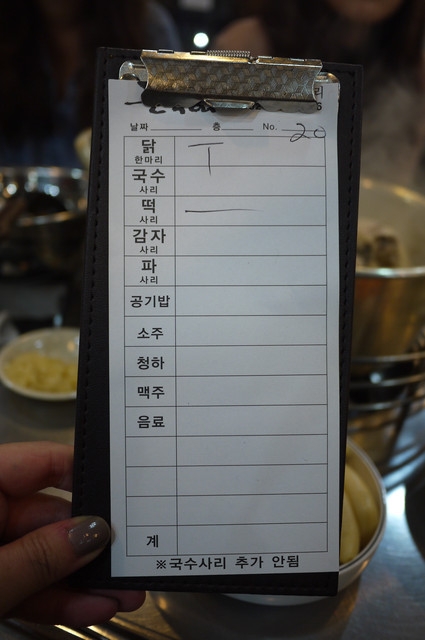 날짜 층 No. 20
닭 한마리 T
국수 사리
떡 사리 一
감자 사리
파 사리
공기밥
소주
청하
맥주
음료
계
※국수사리 추가 안됨